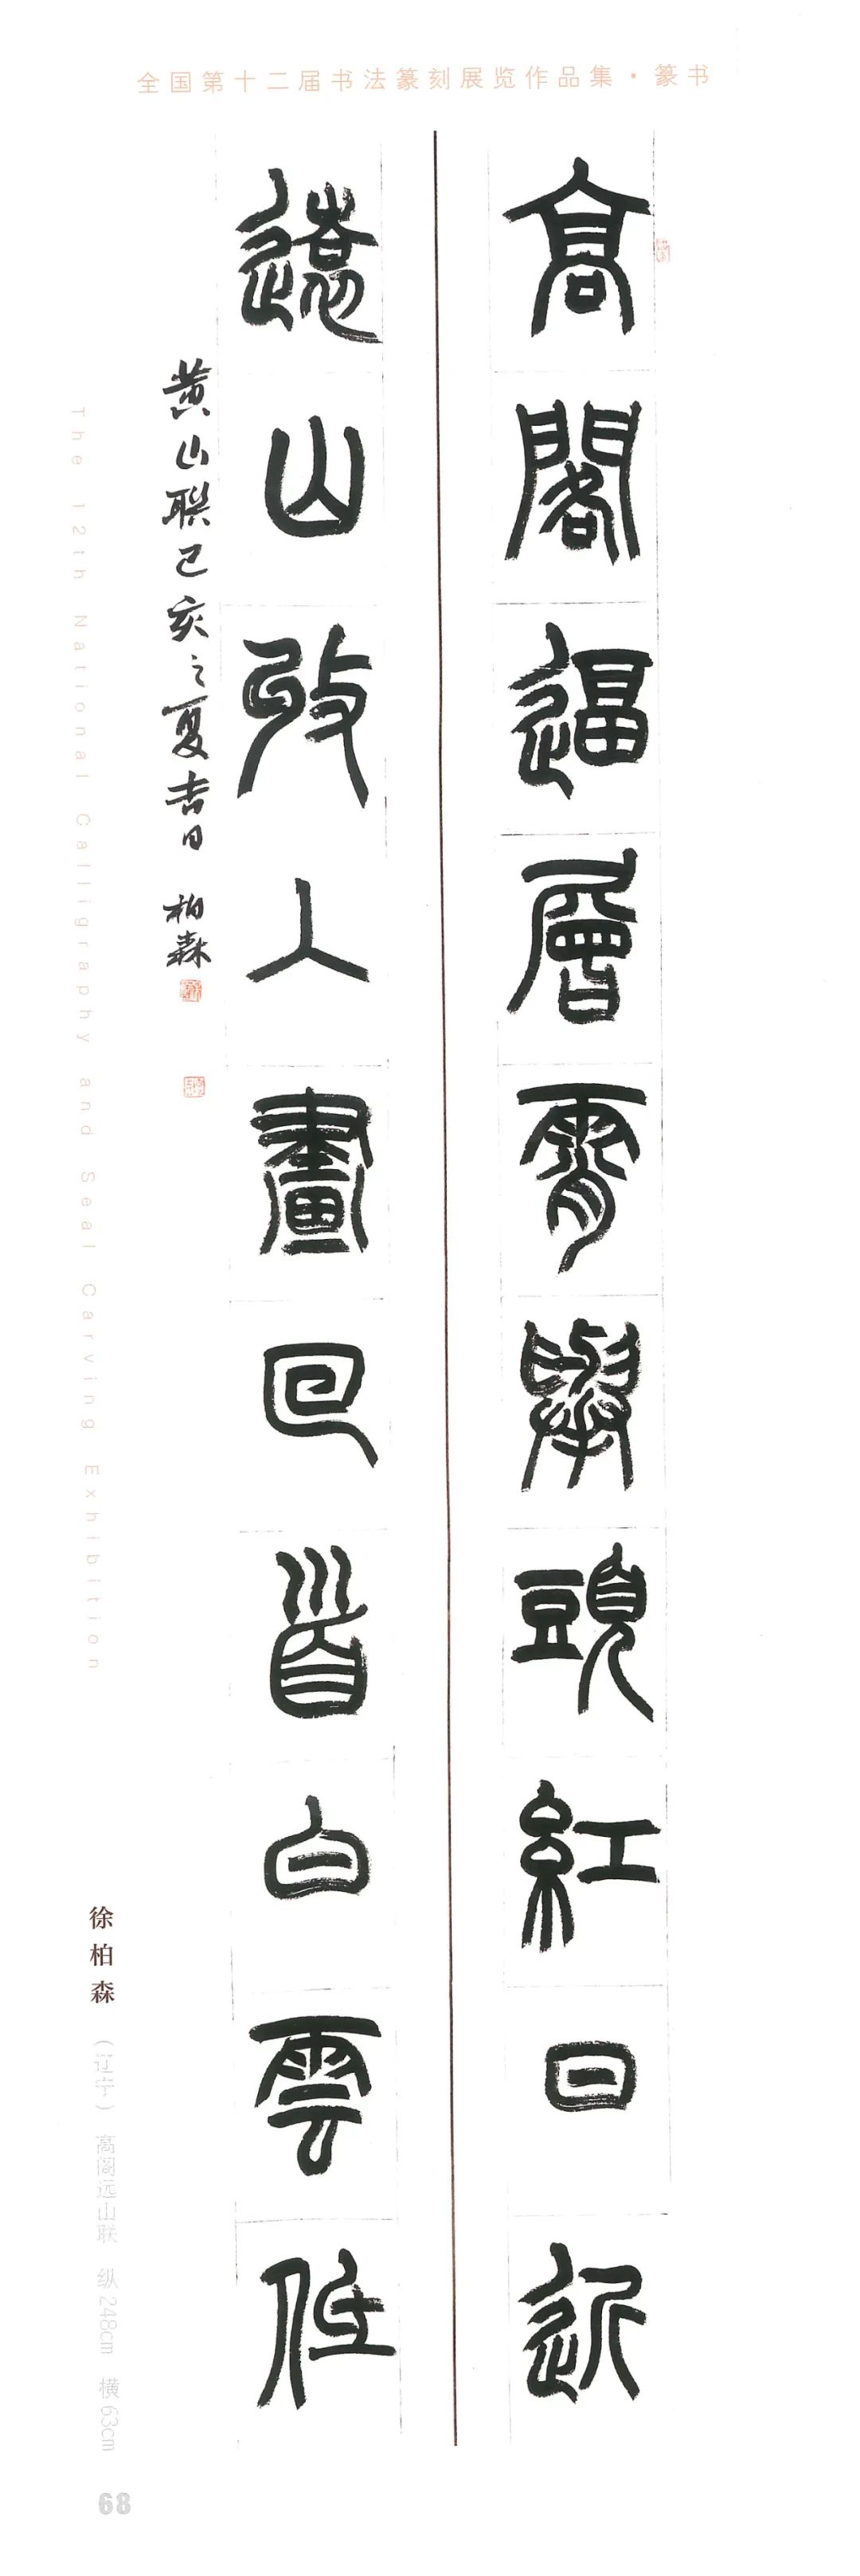 全国第十二届书法篆刻展览作品集·篆书
高閣逼層霄舉頭紅日近
遠山收入畫回首白雲低
黄山聯己亥之夏吉日 柏森
The 12th National Calligraphy and Seal Carving Exhibition
徐柏森 （辽宁） 高阁远山联 纵248cm 横63cm
68